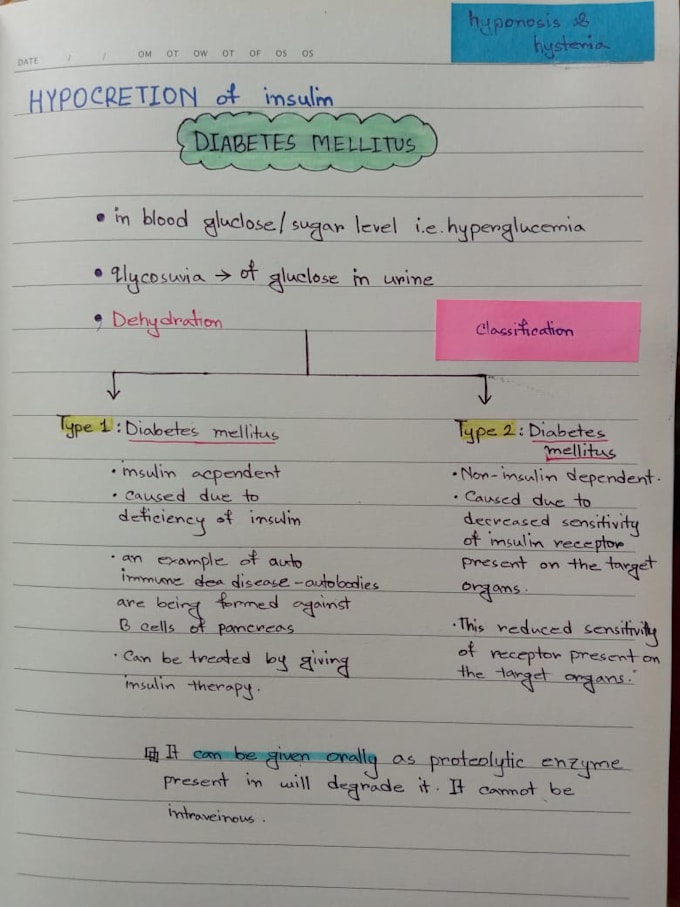 hyponosis &
hysteria
DATE / / OM OT OW OT OF OS OS
HYPOCRETION of insulin
DIABETES MELLITUS
• in blood gluclose/sugar level i.e. hyperglucemia
• Glycosuvia → of gluclose in urine
• Dehydration
Classification
Type 1 : Diabetes mellitus
• insulin acpendent
• caused due to
deficiency of insulin
• an example of auto
immune dea disease - autobodies
are being formed against
B cells of pancreas
• Can be treated by giving
insulin therapy.
Type 2 : Diabetes
mellitus
• Non-insulin dependent.
• Caused due to
decreased sensitivity
of insulin receptor
present on the target
organs.
• This reduced sensitivity
of receptor present on
the target organs.
It can be given orally as proteolytic enzyme
present in will degrade it. It cannot be
intraveinous.